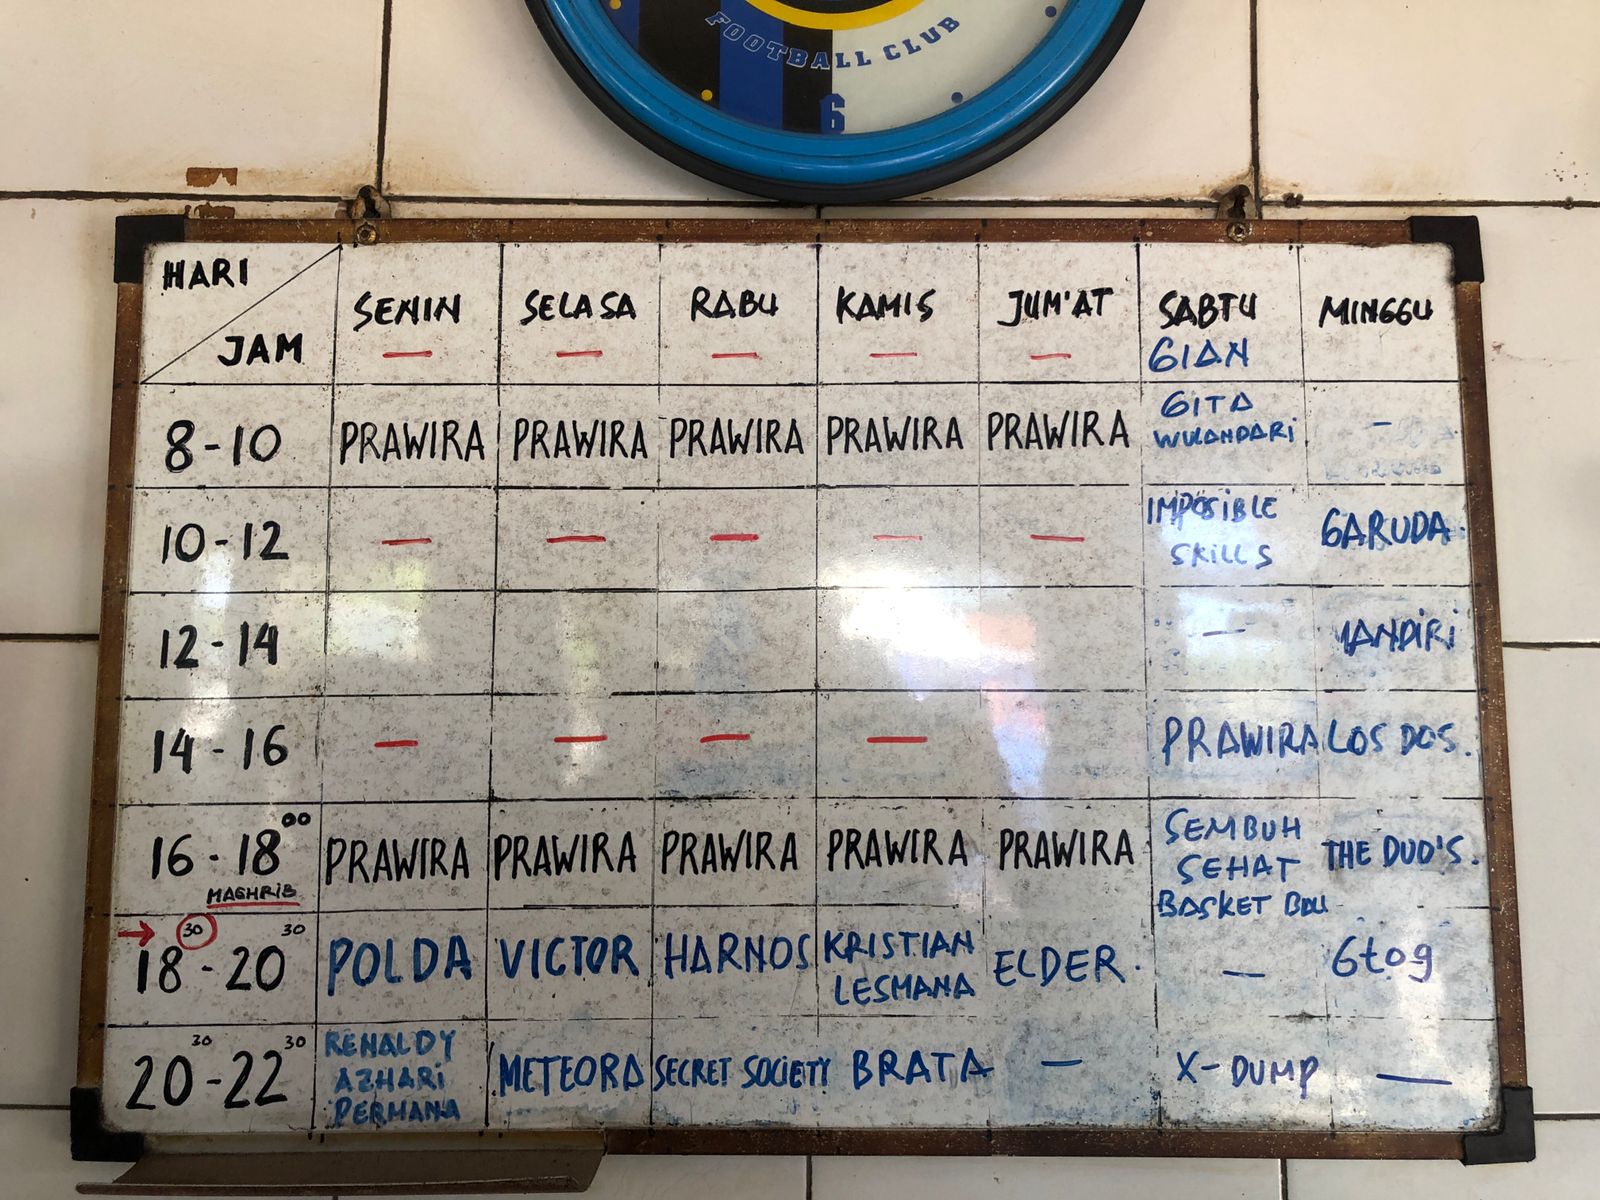 FOOTBALL CLUB
6
HARI
JAM
SENIN SELASA RABU KAMIS JUM'AT SABTU MINGGU
— — — — — GIAN
8-10 PRAWIRA PRAWIRA PRAWIRA PRAWIRA PRAWIRA GITA WULANDARI -
10-12 — — — — — IMPOSIBLE SKILLS GARUDA.
12-14 —
14-16 — — — — PRAWIRA LOS DOS.
16-18 00 PRAWIRA PRAWIRA PRAWIRA PRAWIRA PRAWIRA SEMBUH SEHAT BASKET THE DUD'S.
MAGHRIB
→ 18 30 - 20 30 POLDA VICTOR HARNOS KRISTIAN LESMANA ELDER. — Gtog
20 30 - 22 30 RENALDY AZHARI PERMANA METEORA SECRET SOCIETY BRATA — X-DUMP —